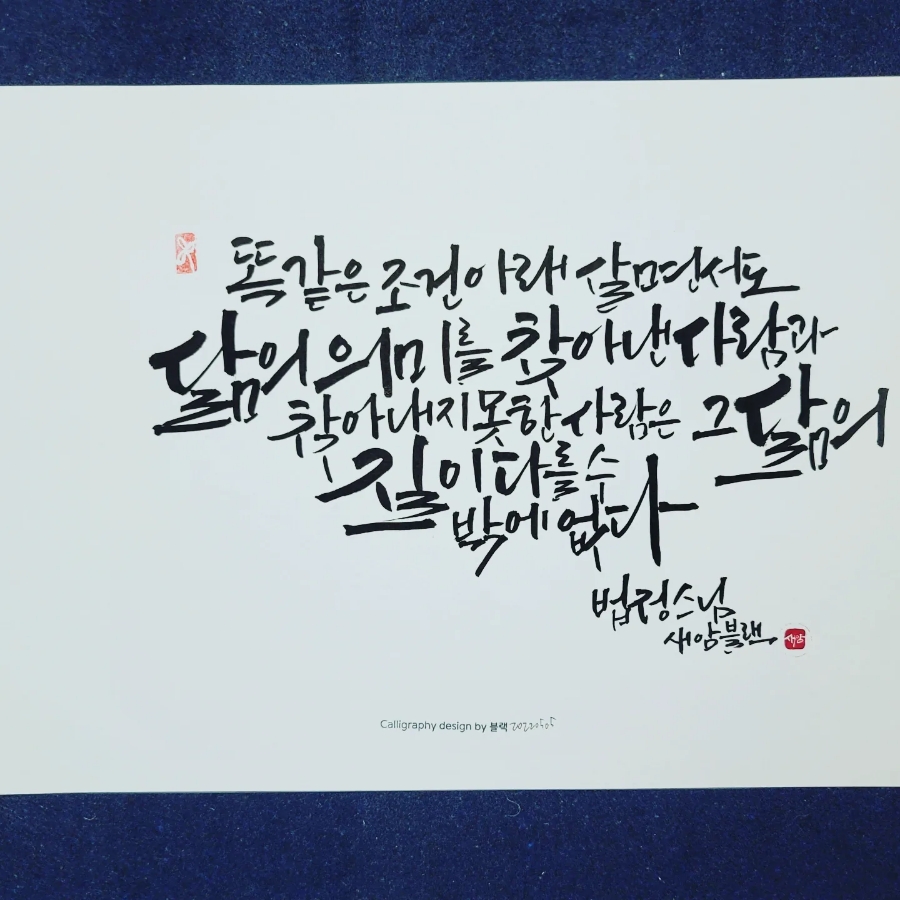 똑같은 조건 아래 살면서도
삶의 의미를 찾아낸 사람과
찾아내지 못한 사람은 그 삶의
질이 다를 수
밖에 없다
법정스님
새암블랙
새암
Calligraphy design by 블랙 20220505